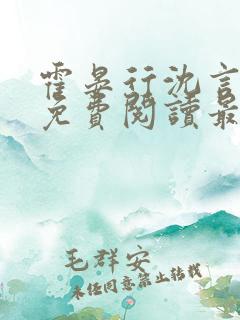 霍晏行沈言
免費閱讀最
毛群安
未經同意禁止轉載